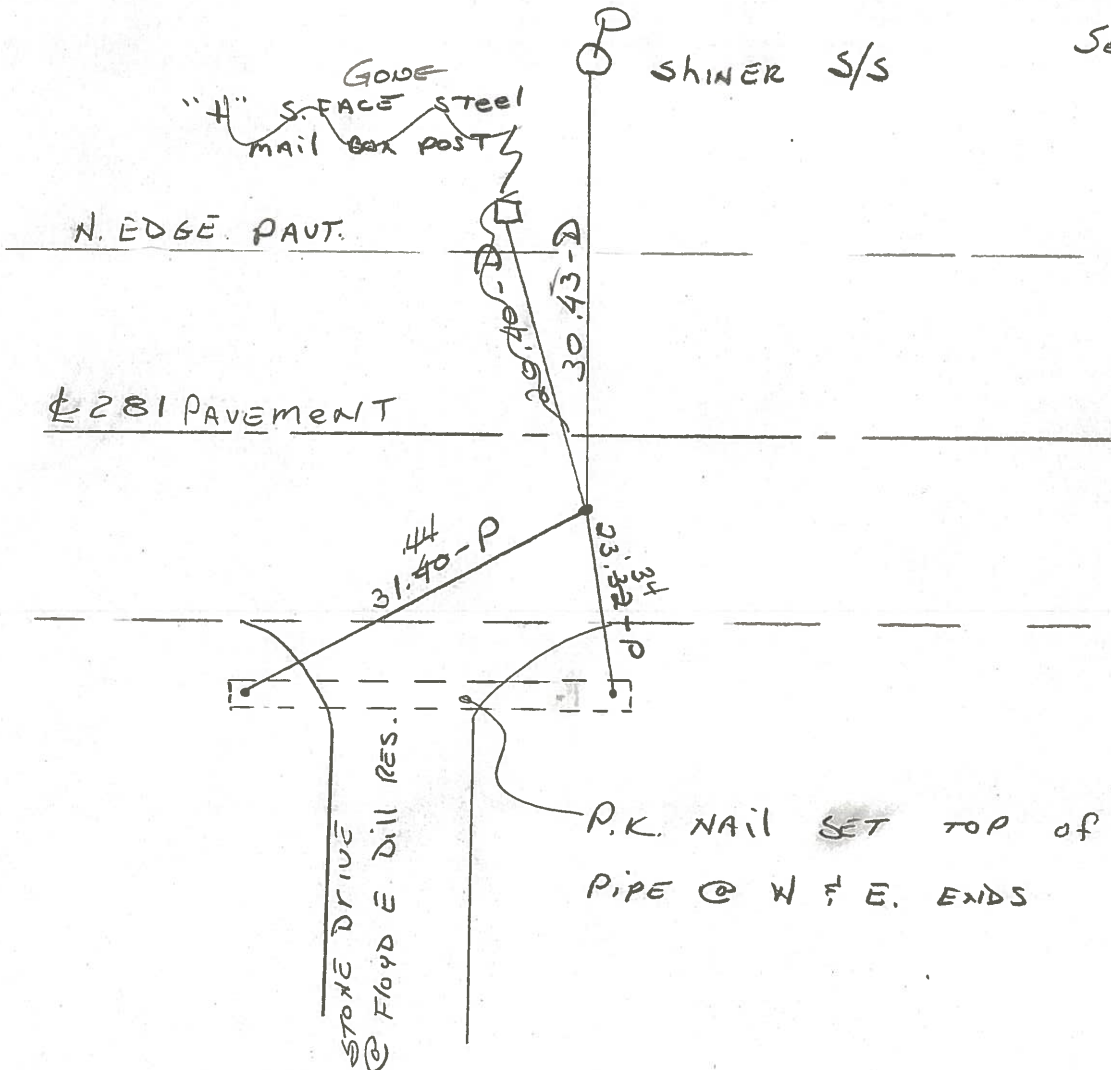 P
Se
SHINER S/S
GONE
"H" S. FACE STEEL
MAIL BOX POST
N. EDGE. PAVT.
29.40-D
30.43-D
℄ 281 PAVEMENT
.44
31.40-P
.34
23.32-P
STONE DRIVE
@ FLOYD E. Dill RES.
P.K. NAIL SET TOP OF
PIPE @ W & E. ENDS